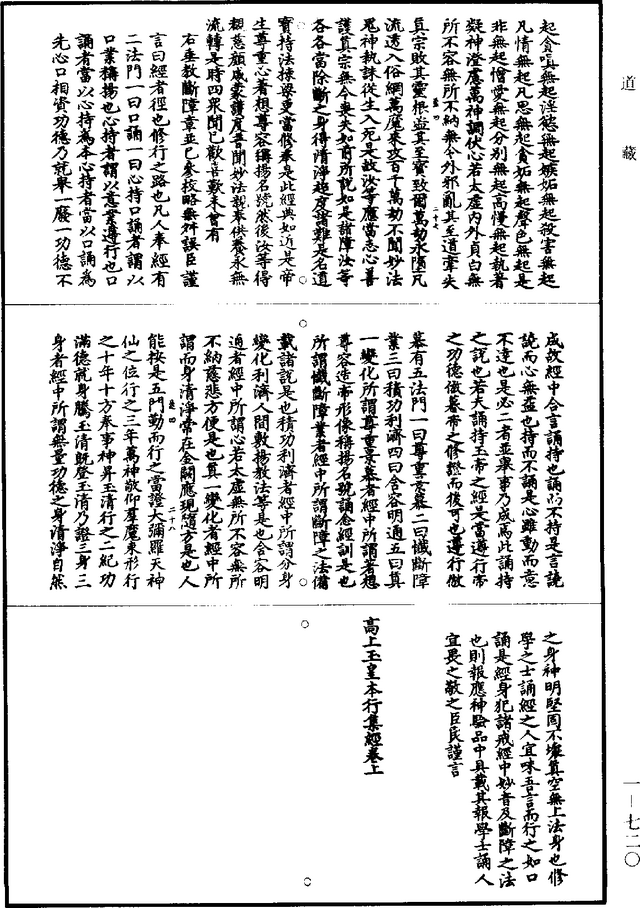 道藏
起貪嗔無起淫慾無起嫉妬無起殺害無起
凡情無起凡思無起貪妬無起聲色無起是
非無起憎愛無起分別無起高慢無起執著
凝神澄慮萬神調伏心若太虛內外貞白無
所不容無所不納無令外邪亂其至道牽失
真宗敗其靈根盜其至寶致爾萬劫永墮凡
流透入俗網萬魔來攻百千萬劫不聞妙法
鬼神執誅從生入死是故汝等應當志心善
護真宗無令喪失如前所說如是諸障汝等
各各當除斷之身得清淨超度諸難是名道
寶持法接梁更當修奉是此經典如近是帝
生尊重心者想尊容稱揚名號然後汝等得
想慈顏咸蒙護度吾聞妙法親奉供養永無
流轉是時四眾聞已歡喜歎未曾有
右垂教斷障章並已參校略無舛誤臣謹
言曰經者徑也修行之路也凡人奉經有
二法門一曰口誦一曰心持口誦者謂以
口業稱揚也心持者謂以意業遵行也口
誦者當以心持為本心持者當以口誦為
先心口相資功德乃就舉一廢一功德不
二十七
成故經中合言誦持也誦而不持是言謊
謊而心無益也持而不誦是心雖動而意
不達也是必二者並舉事乃成焉此誦持
之說也若夫誦持玉帝之經是當遵行帝
之功德倣慕帝之修證而後可也遵行倣
慕有五法門一曰尊重哀慕二曰懺斷障
業三曰積功利濟四曰含容明通五曰真
一變化所謂尊重哀慕者經中所謂若想
尊容造帝形像稱揚名號誦念經訓是也
所謂懺斷障業者經中所謂斷障之法備
載諸說是也積功利濟者經中所謂分身
變化利濟人間數揚教法等是也含容明
通者經中所謂心若太虛無所不容無所
不納慈悲方便是也真一變化者經中所
謂而身清淨常在金闕應現隨方是也人
能按是五門勤而行之當證大彌羅天神
仙之位行之三年萬神敬仰羣魔束形行
之十年十方奉事神昇玉清行之二紀功
滿德就身騰玉清既登玉清乃證三身三
身者經中所謂無量功德之身清淨自然
二十八
之身神明堅固不壞真空無上法身也修
學之士誦經之人宜味吾言而行之如口
誦是經身犯諸戒經中妙音及斷障之法
也則報應神驗品中具載其報學士誦人
宜畏之敬之臣民謹言
高上玉皇本行集經卷上
一—七二〇